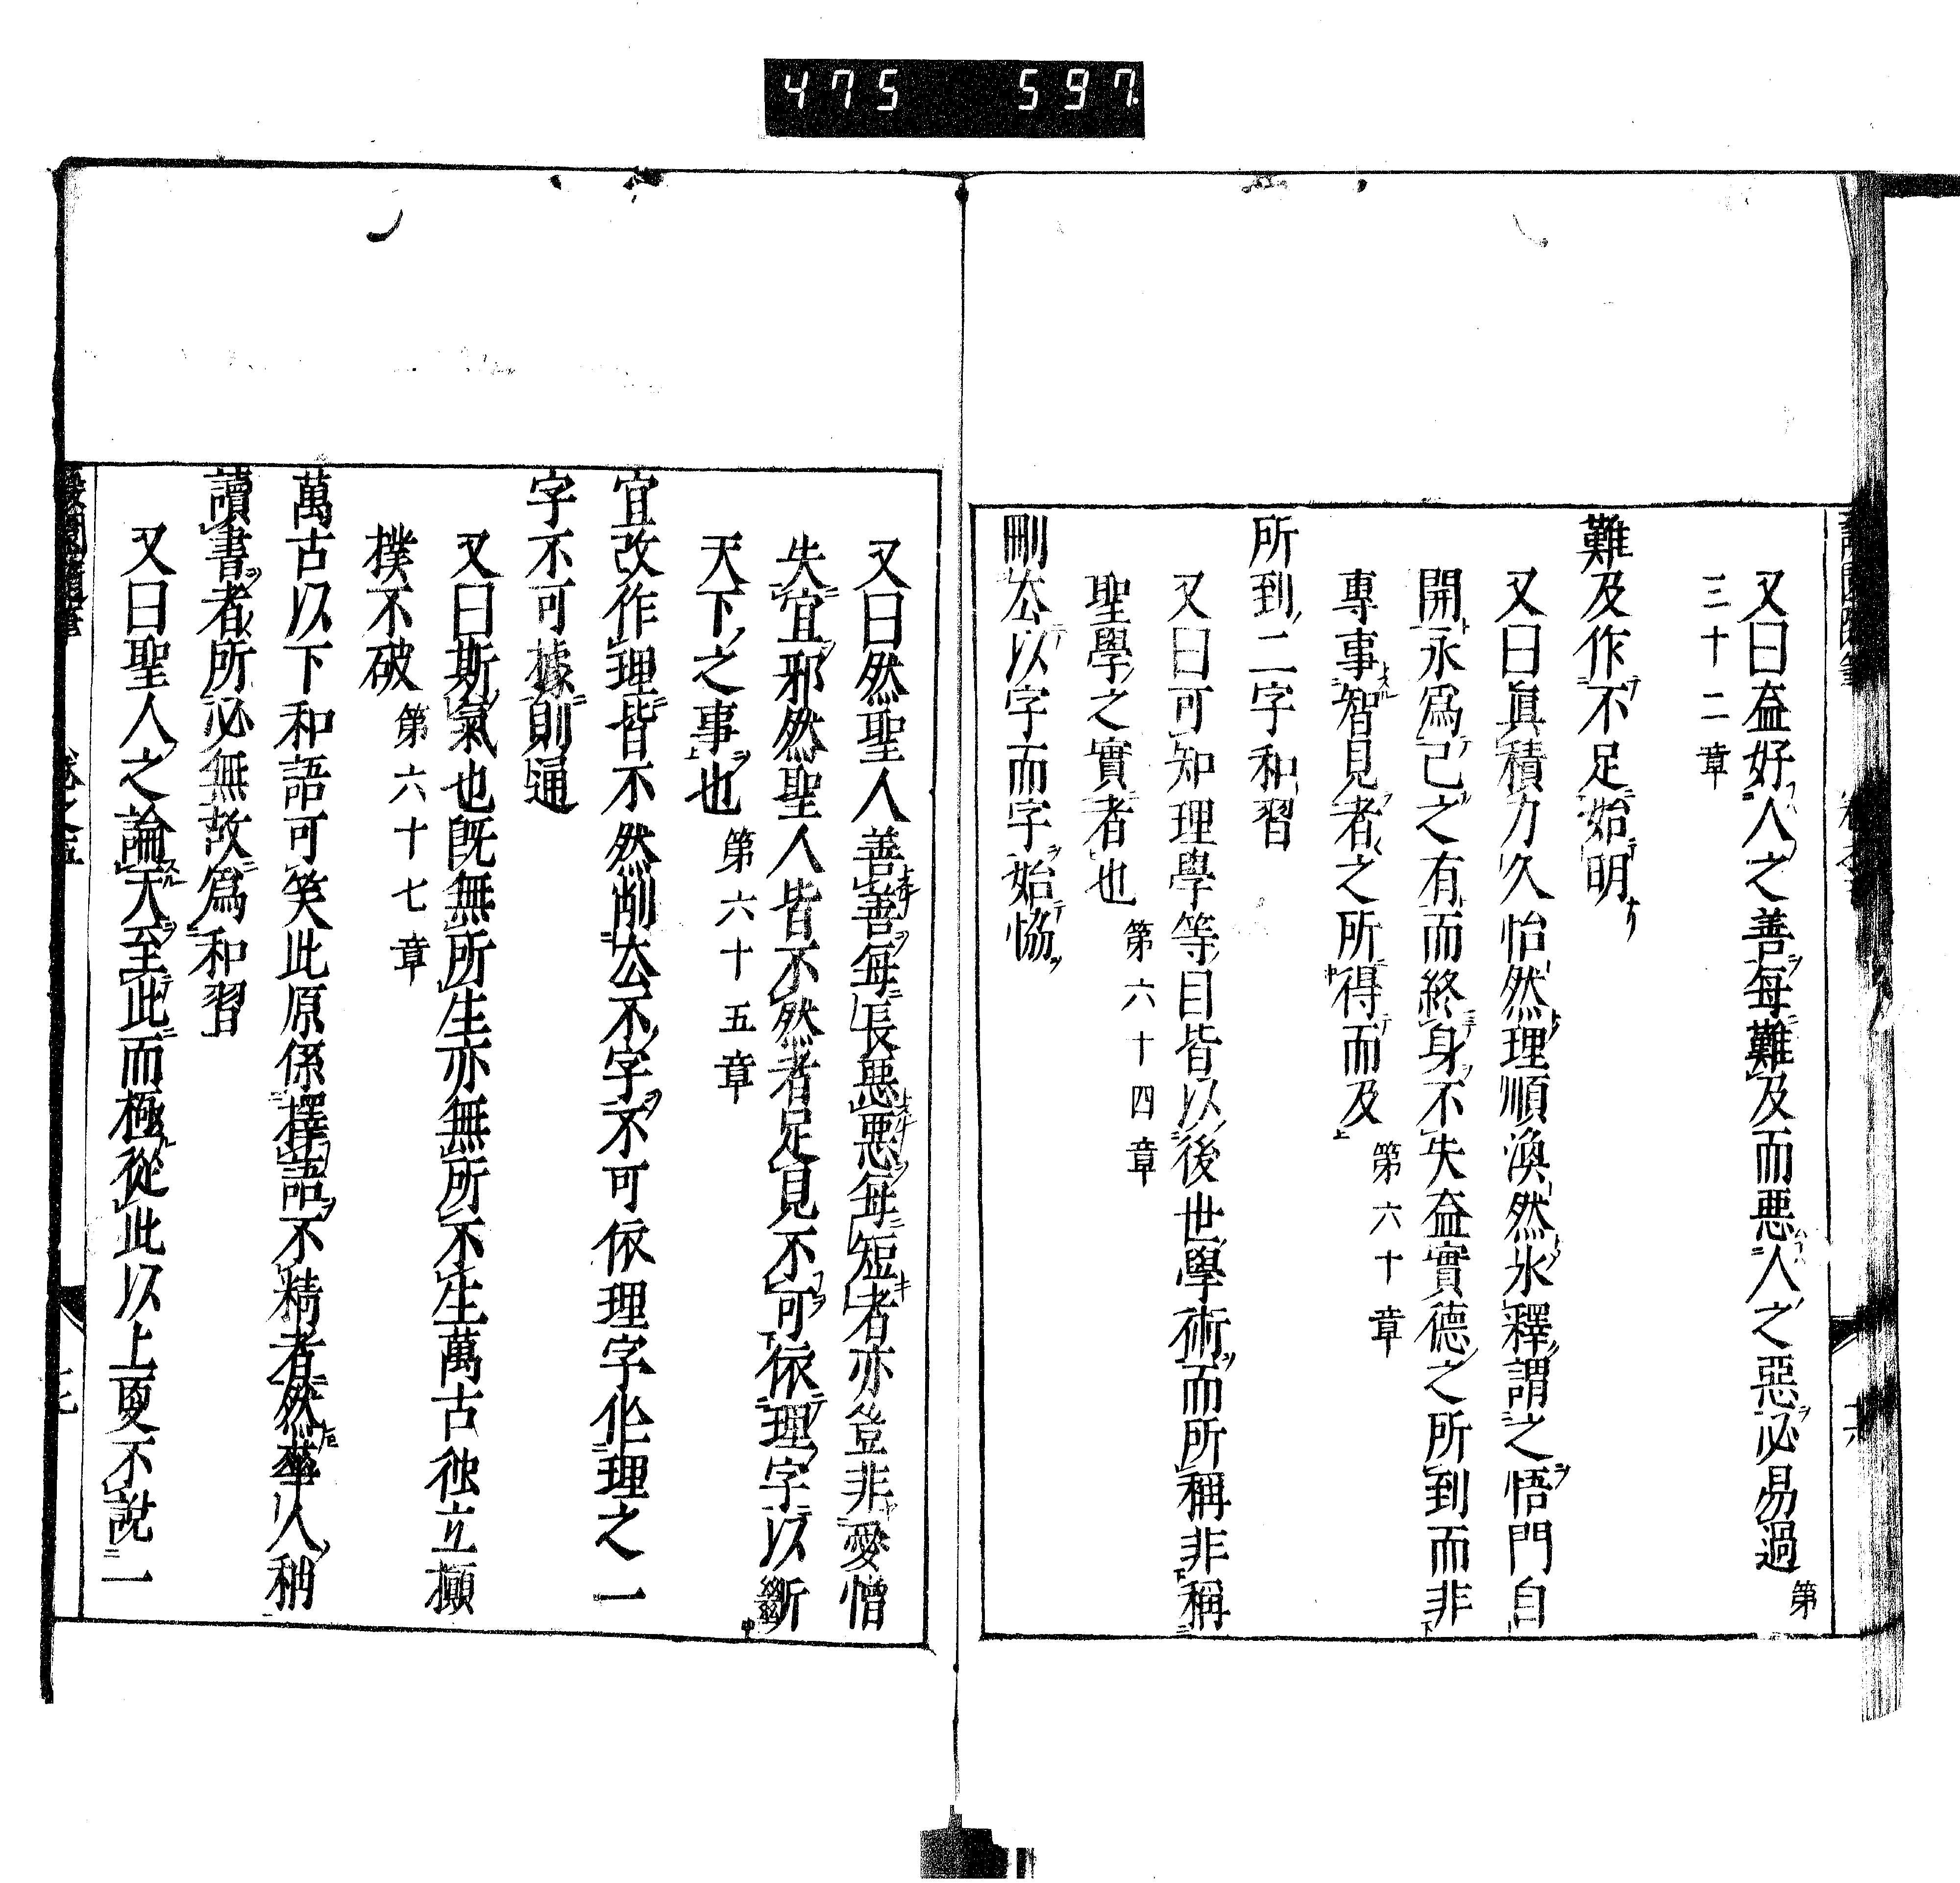 475 597
又曰益好人之善每難及而惡人之惡必易過第
三十二章
難及作不足始明
又曰眞積力久怡然理順渙然氷釋謂之悟門自
開永爲己之有而終身不失益實德之所到而非
專事智見者之所得而及第六十章
所到二字和習
又曰可知理學等目皆以後世學術而所稱非稱
聖學之實者也第六十四章
刪厺以字而字始恊
又曰然聖人善善每長惡惡每短者亦豈非愛憎
失宜邪然聖人皆不然者足見不可依理字以斷
天下之事也第六十五章
宜改作理皆不然刪厺不字不可依理字作理之一
字不可據則通
又曰斯氣也既無所生亦無所不生萬古獨立攧
撲不破第六十七章
萬古以下和語可笑此原係擇語不精者然華人稍
讀書者所必無故爲和習
又曰聖人之論天至此而極從此以上更不說一